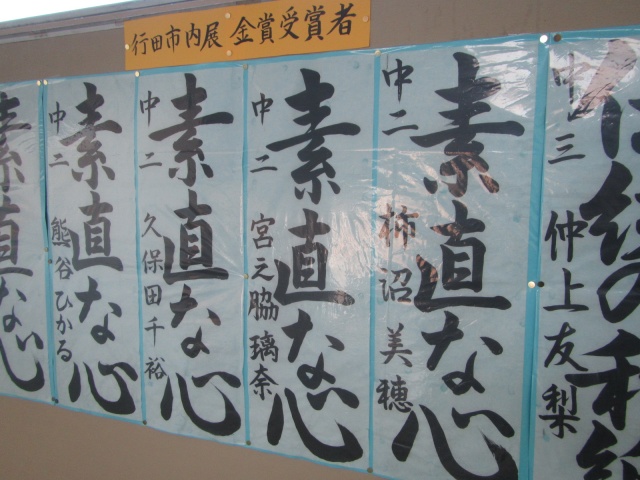 行田市内展 金賞受賞者
伝統の和紙
中三 仲上友梨
素直な心
中二 柿沼美穂
素直な心
中二 宮之脇璃奈
素直な心
中二 久保田千裕
素直な心
中二 熊谷ひかる
素直な心